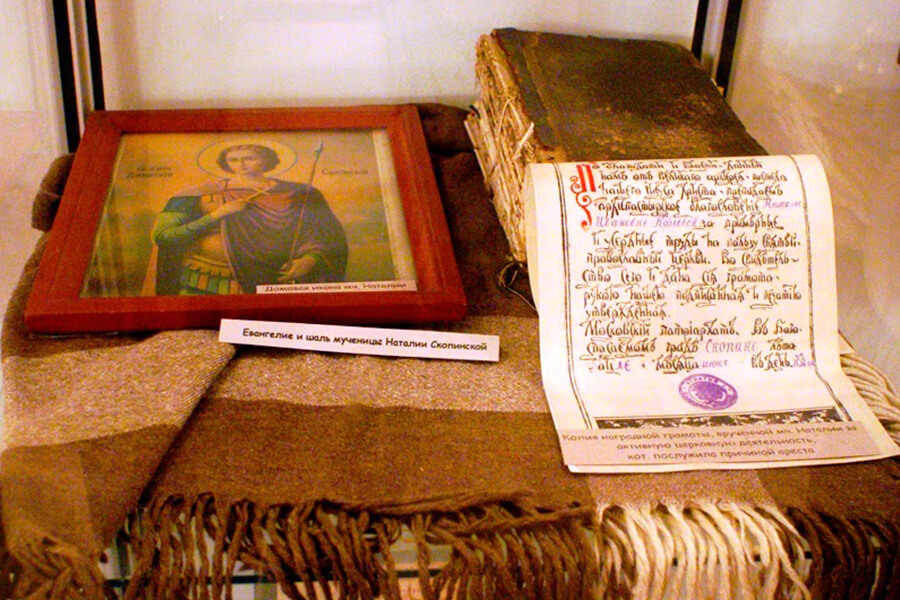 Димитрий
Солунский
Домовая икона мч. Наталии
Евангелие и шаль мученицы Наталии Скопинской
нашего Иисуса Христа преподаем
архипастырское благословение
Ивановне за примерные
и усердные труды на пользу святой
православной церкви. Во свидетель-
ство сего и дана сия грамота
рукою нашею подписанная и печатию
утвержденная.
Московский патриархат. В Бого-
спасаемом граде Скопине, лета
месяца июня в день
Копия наградной грамоты, врученной мч. Наталии за
активную церковную деятельность,
кот. послужила причиной ареста